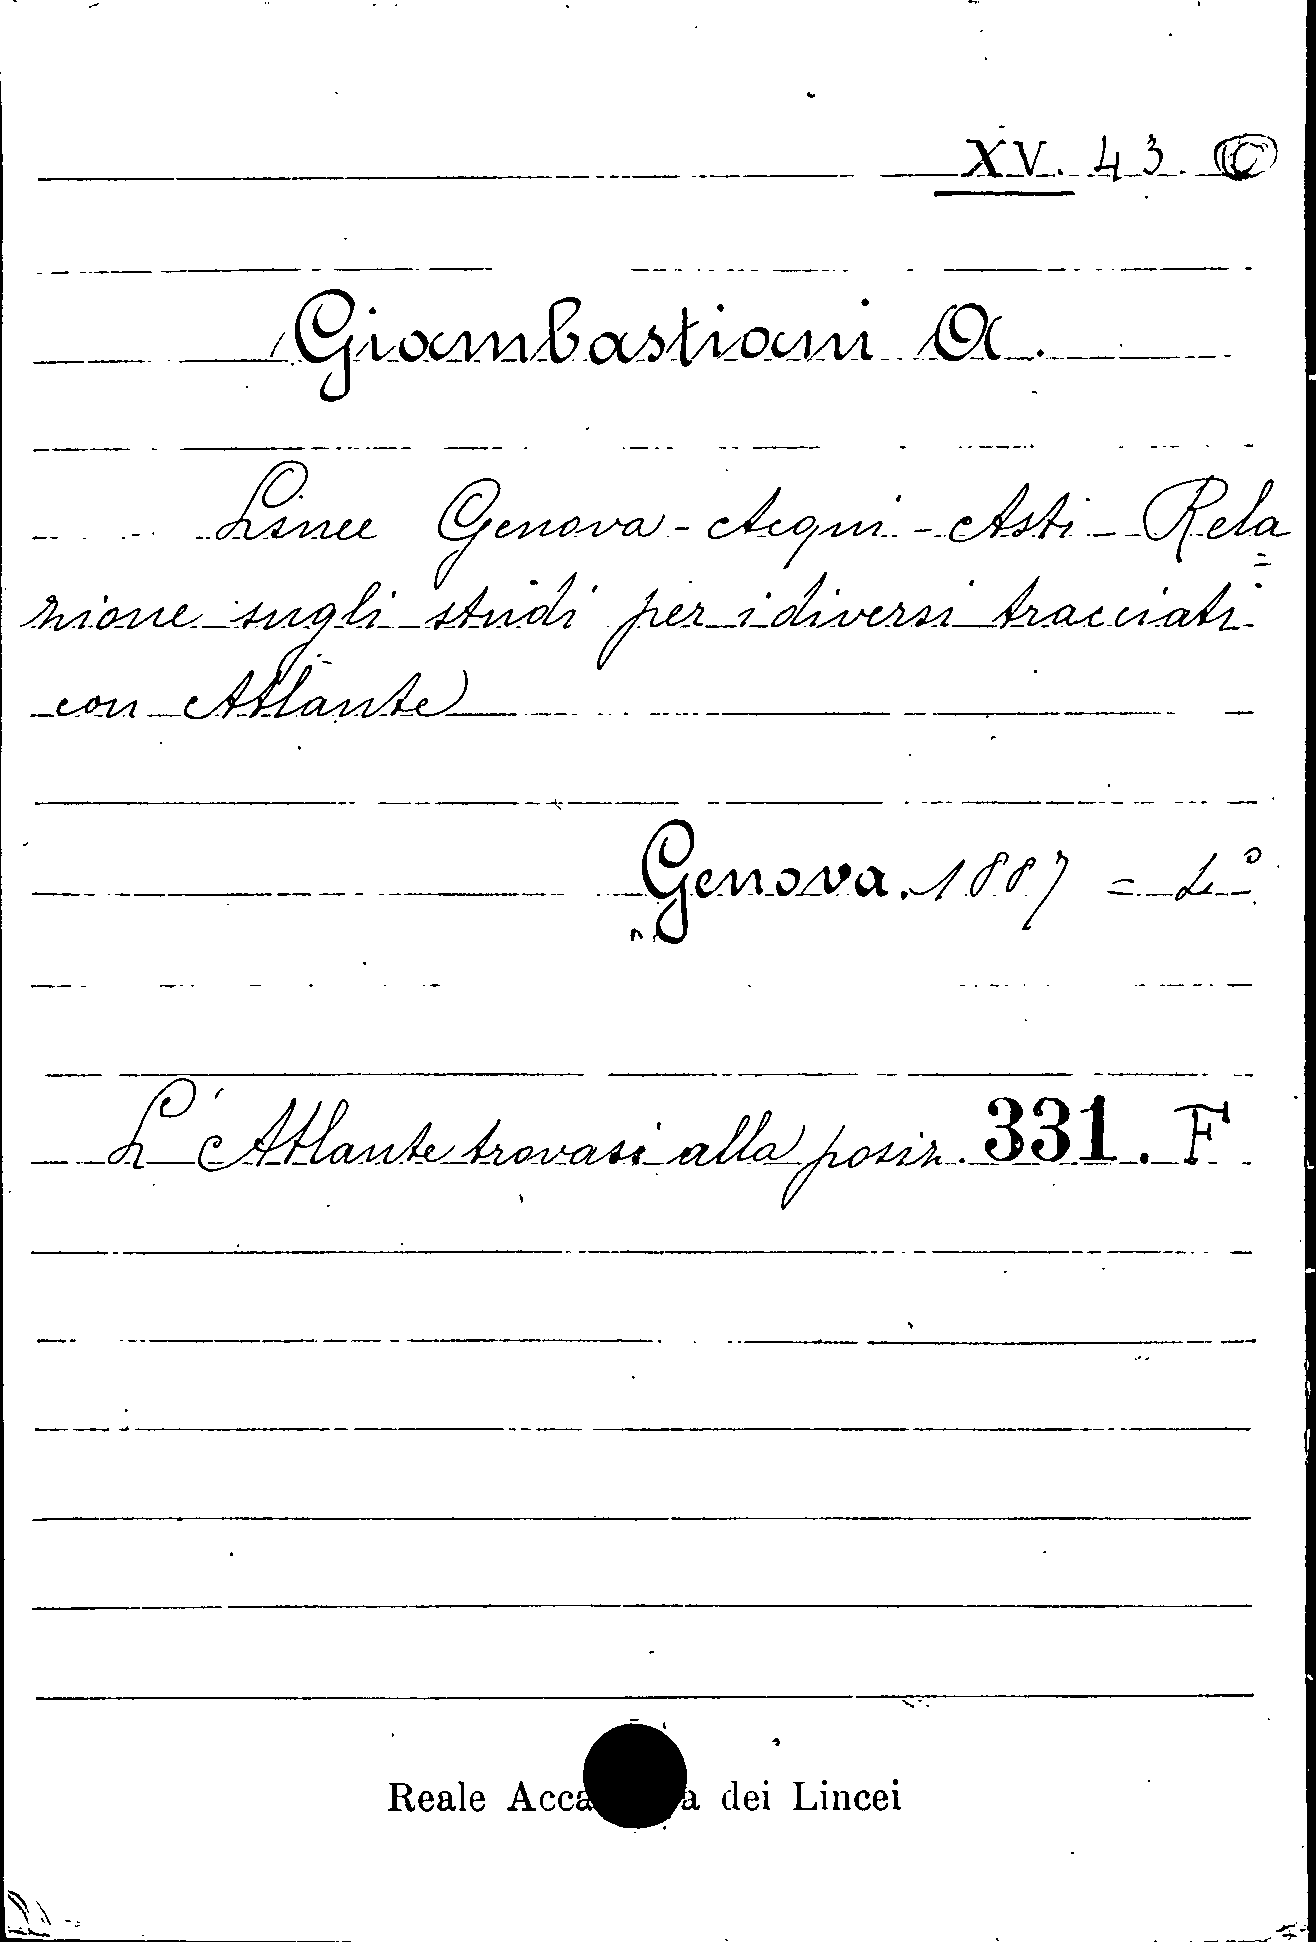 XV. 43. C
Giambastiani A.
Linee Genova - Acqui - Asti - Rela
zione sugli studi per i diversi tracciati
con Atlante
Genova. 1887 =
L'Atlante trovasi alla posiz. 331. F
Reale Acca a dei Lincei